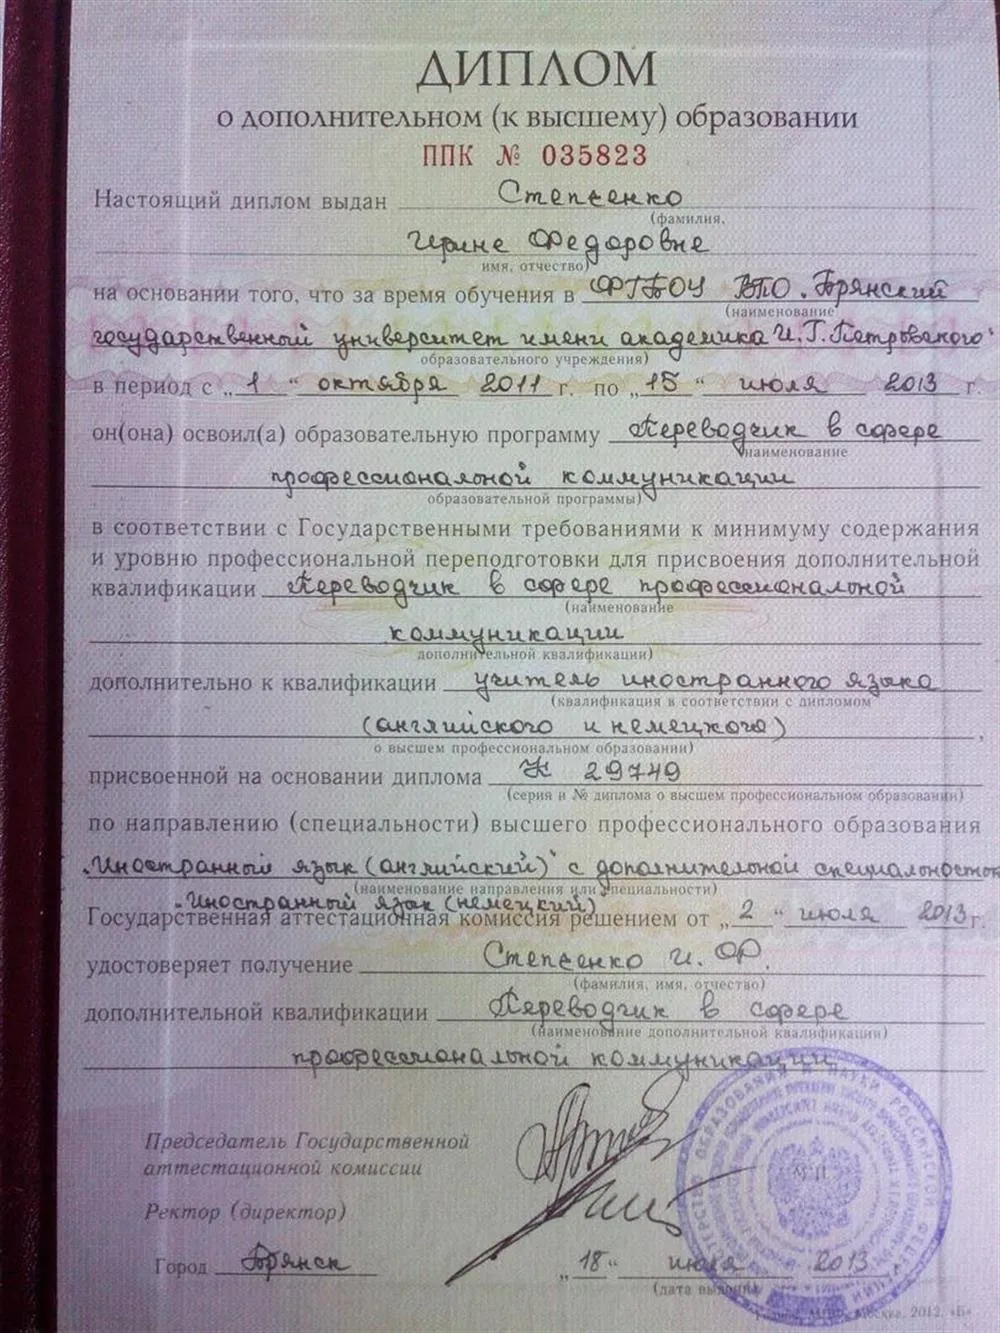 ДИПЛОМ
о дополнительном (к высшему) образовании
ППК № 035823
Настоящий диплом выдан Степченко
(фамилия,
Ирине Федоровне
имя, отчество)
на основании того, что за время обучения в ФГБОУ ВПО „Брянский
(наименование
государственный университет имени академика И.Г.Петровского"
образовательного учреждения)
в период с „ 1 " октября 2011 г. по „ 15 " июля 2013 г.
он(она) освоил(а) образовательную программу Переводчик в сфере
(наименование
профессиональной коммуникации
образовательной программы)
в соответствии с Государственными требованиями к минимуму содержания
и уровню профессиональной переподготовки для присвоения дополнительной
квалификации Переводчик в сфере профессиональной
(наименование
коммуникации
дополнительной квалификации)
дополнительно к квалификации учитель иностранного языка
(квалификация в соответствии с дипломом
(английского и немецкого) ,
о высшем профессиональном образовании)
присвоенной на основании диплома К 29749
(серия и № диплома о высшем профессиональном образовании)
по направлению (специальности) высшего профессионального образования
„Иностранный язык (английский)" с дополнительной специальностью
(наименование направления или специальности)
„Иностранный язык (немецкий)"
Государственная аттестационная комиссия решением от „ 2 " июля 2013 г.
удостоверяет получение Степченко И. Ф.
(фамилия, имя, отчество)
дополнительной квалификации Переводчик в сфере
(наименование дополнительной квалификации)
профессиональной коммуникации
Председатель Государственной
аттестационной комиссии
М.П.
Ректор (директор)
Город Брянск „ 18 " июля 2013
(дата выдачи)
Москва, 2012, «Б»